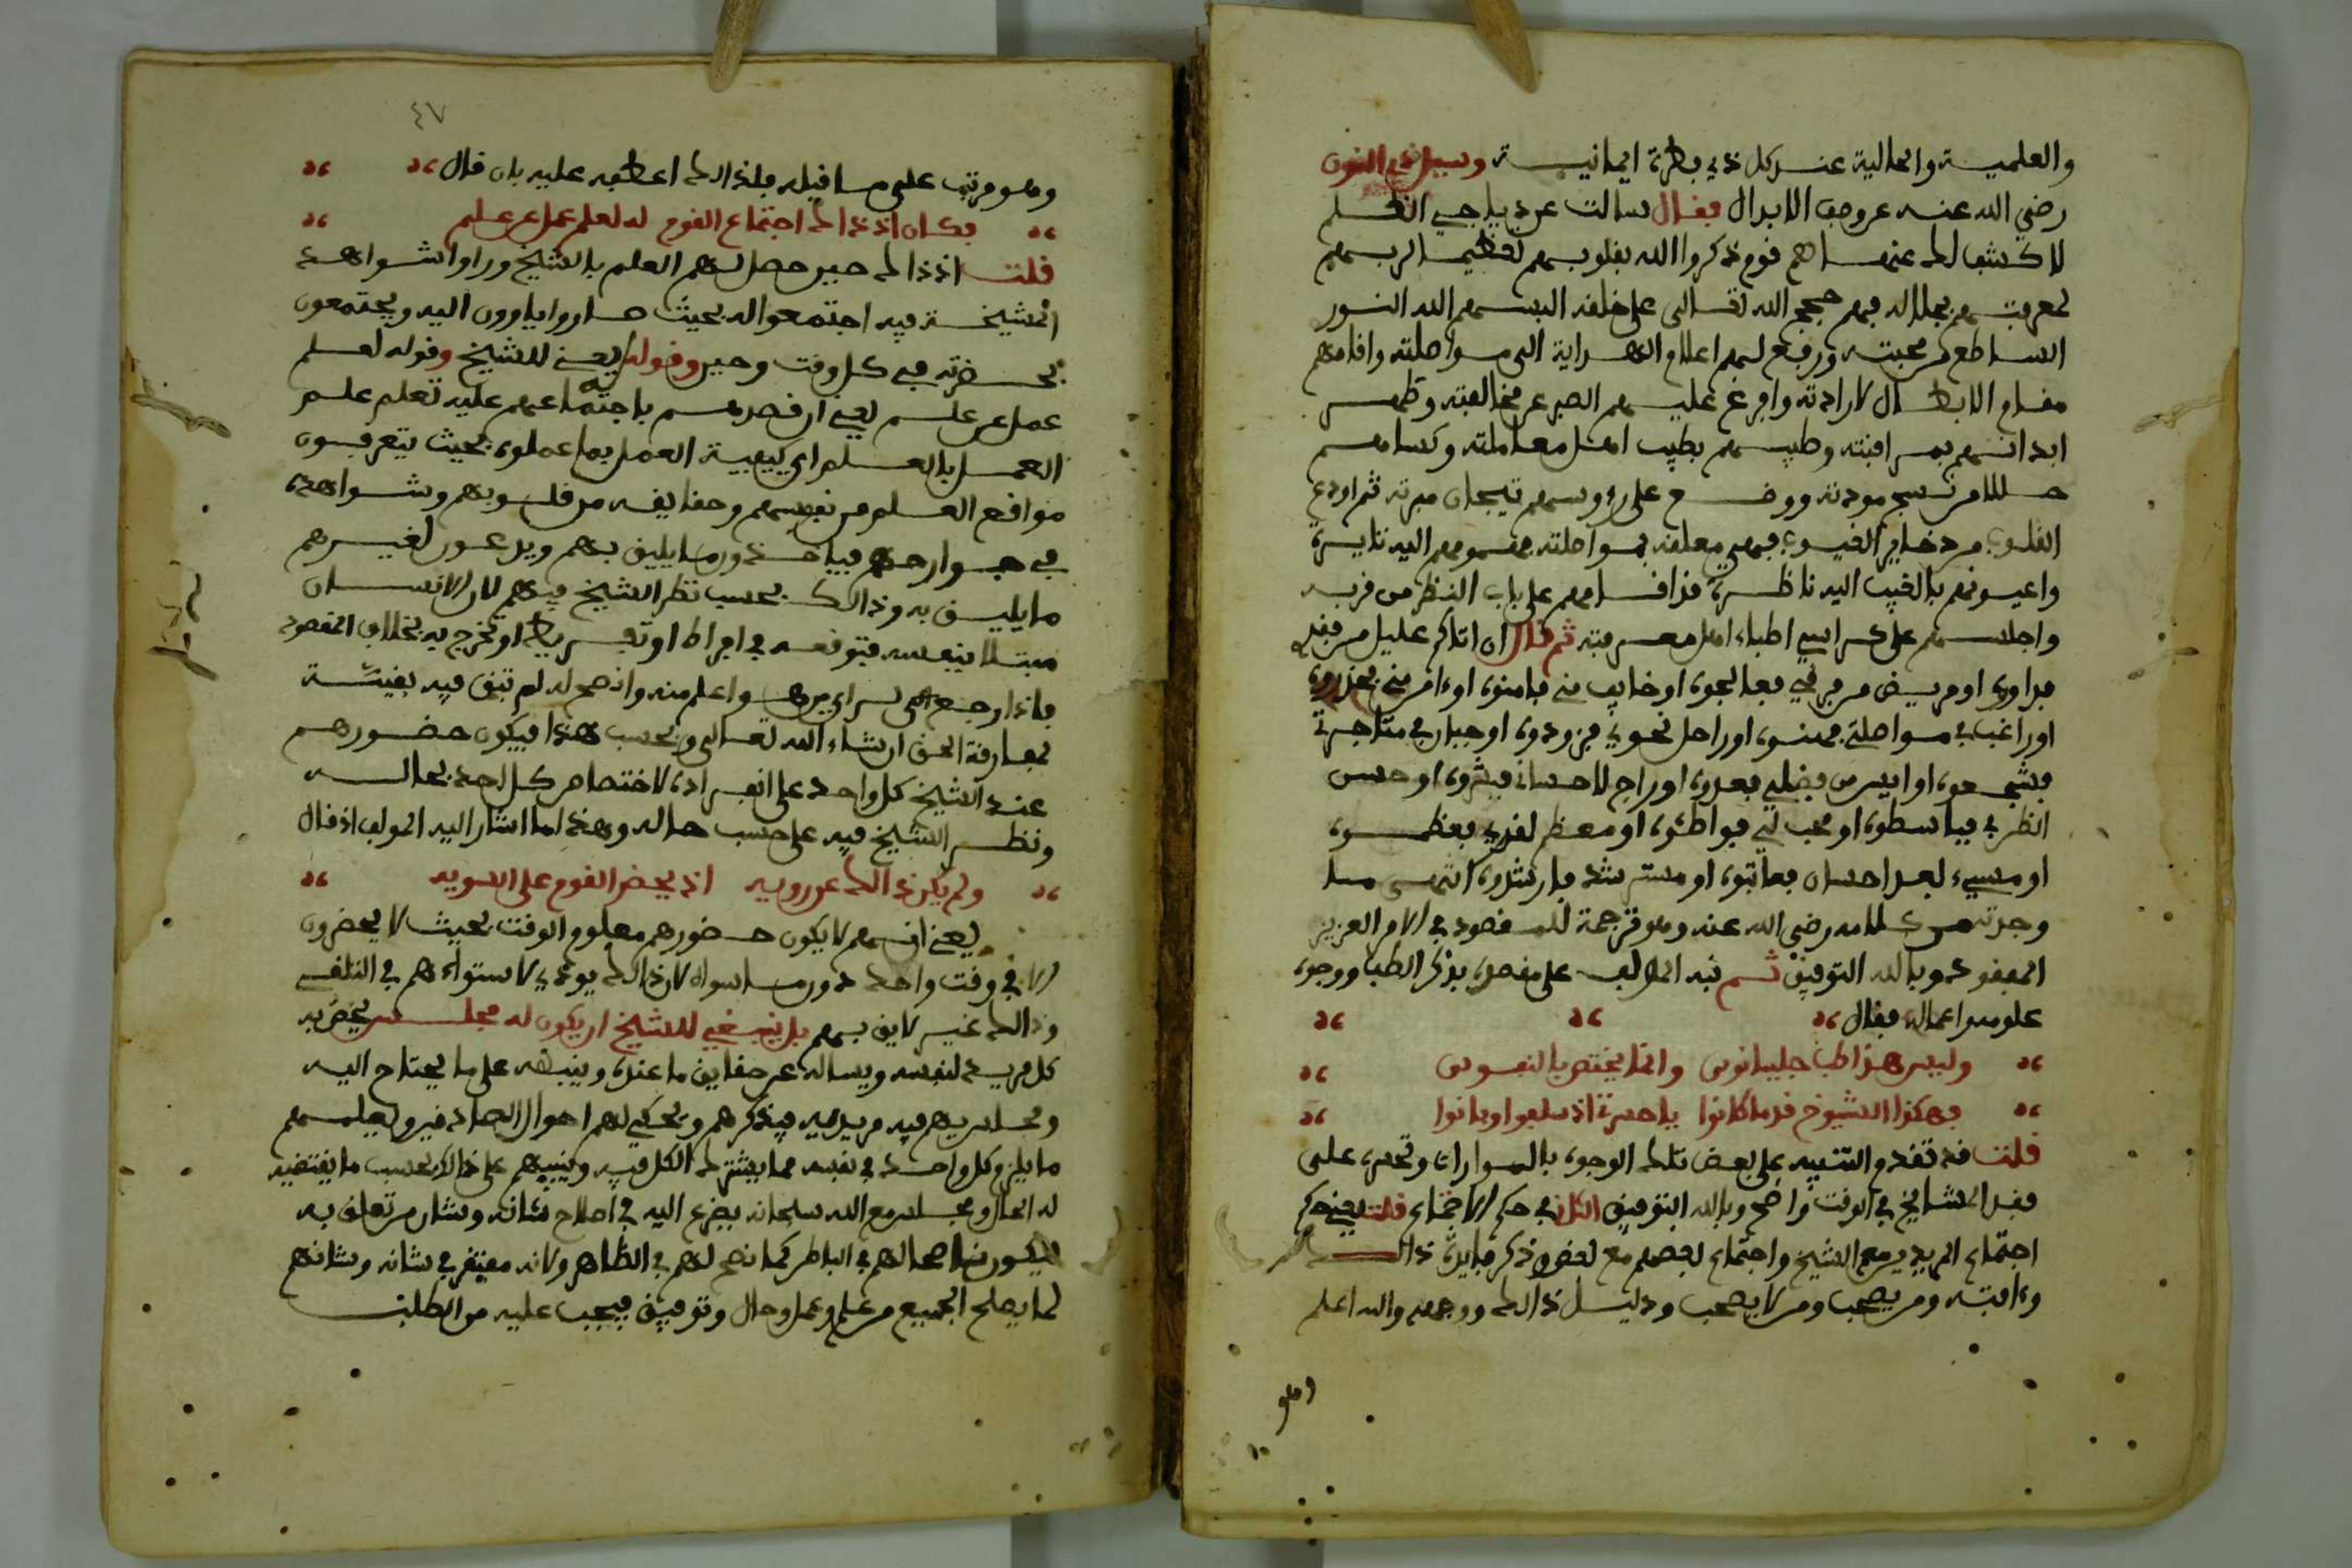 والعلمية والحالية عند كل ذي بطرة ايمانية وسيل ذو النون
رضي الله عنه عن وصف الابدال فقال سالت عن دياجي الظلم
لاكشف لك عنها هم قوم ذكروا الله بقلوبهم تعظيما لربهم
لمعرفتهم بجلاله فهم حجج الله تعالى على خلقه البسهم الله النور
الساطع من محبته ورفع لهم اعلام الهداية الى مواصلته واقامهم
مقام الابطال لارادته وافرغ عليهم الصبر عن مخالفته وطهر
ابدانهم بمراقبته وطيبهم بطيب اهل معاملته وكساهم
حللا من نسج مودته ووضع على رءوسهم تيجان مبرته ثم اودع
القلوب من ذخاير الغيوب فهي معلقة بمواصلته فهمومهم اليه نايرة
واعينهم بالغيب اليه ناظرة قد اقامهم على باب النظر من قربه
واجلسهم على كراسي اطباء اهل معرفته ثم قال ان اتاكم عليل من فقدي
فداووه او مريض من فرقي فعالجوه او خايف مني فامنوه او ءامن مني فحذروه
او راغب في مواصلتي فمنوه او راحل نحوي فزودوه او جبان في متاجرتي
فشجعوه او ايس من فضلي فعدوه او راج لاحساني فبشروه او حسن
الظن بي فباسطوه او محب لي فواطئوه او معظم لقدري فعظموه
او مسيء بعد احسان فعاتبوه او مسترشد فارشدوه انتهى ما
وجدته من كلامه رضي الله عنه وهو ترجمة للمقصود في الامر العزيز
المفقود وبالله التوفيق ثم نبه المؤلف على مقصده بذكر الطب ووجوه
علومه واعماله فقال
وليس هذا طب جالينوس وانما يختص بالنفوس
فهكذا الشيوخ قدما كانوا ياحسرتا اذ سلفوا وبانوا
قلت قد تقدم التنبيه على بعض تلك الوجوه بالموارات وتحسره على
فقد المشايخ في الوقت واضح وبالله التوفيق الثاني في حكم الاجتماع قلت يعني حكم
اجتماع المريدين مع الشيخ واجتماع بعضهم مع بعض وذكر فايدة ذالك
وءافته ومن يصحب ومن لا يصحب ودليل ذالك ووجهه والله اعلم
وهو
٤٧
وهو مرتب على ما قبله فلذالك اعطفه عليه بان قال
فكان اذ ذاك اجتماع القوم له لعلم عمل عن علم
قلت اذ ذاك حين حصل لهم العلم بالشيخ وراوا شواهد
المشيخة فيه اجتمعوا له بحيث صاروا ياوون اليه ويجتمعون
بحضرته في كل وقت وحين وقوله له يعني للشيخ وقوله لعلم
عمل عن علم يعني ان قصدهم باجتماعهم عليه تعلم علم
العمل بالعلم اي كيفية العمل بما عملوه بحيث يتعرفون
مواقع العلم من نفوسهم وحقايقه من قلوبهم وشواهده
في جوارحهم فياخذون ما يليق بهم ويدعون لغيرهم
ما يليق به وذالك بحسب نظر الشيخ فيهم لان الانسان
مبتلا بنفسه فتوقعه في افراط او تفريط او تخرج به بخلاف المقصود
فاذا رجع الى من راى من هو اعلم منه وانصح له لم تبق فيه بقية
لمفارقة الحق ان شاء الله تعالى وبحسب هذا فيكون حضورهم
عند الشيخ كل واحد على انفراده لاختصاص كل احد بحاله
ونظر الشيخ فيه على حسب حاله وهذا ما اشار اليه المولف اذ قال
ولم يكن ذالك عن رويه اذ يحضر القوم على السويه
يعني انهم لا يكون حضورهم معلوم الوقت بحيث لا يحضرون
الا في وقت واحد دون ما سواه لان ذالك يودي لاستواءهم في التلقي
وذالك غير لايق بهم بل ينبغي للشيخ ان يكون له مجلس يخص به
كل مريد لنفسه ويساله عن حقايق ما عنده وينبهه على ما يحتاج اليه
ومجلس يعم فيه مريديه فيذكرهم ويحكي لهم احوال الصادقين ويعلمهم
ما يلزم كل واحد في نفسه مما يشترك الكل فيه وينبههم على ذالك بحسب ما يقتضيه
له الحال ومجلس مع الله سبحانه يضرع اليه في اصلاح شانه وشان من تعلق به
ليكون ناصحا لهم في الباطن كما نصح لهم في الظاهر ولانه مفتقر في شانه وشانهم
لما يصلح الجميع من علم وعمل وحال وتوفيق فيجب عليه من الطلب